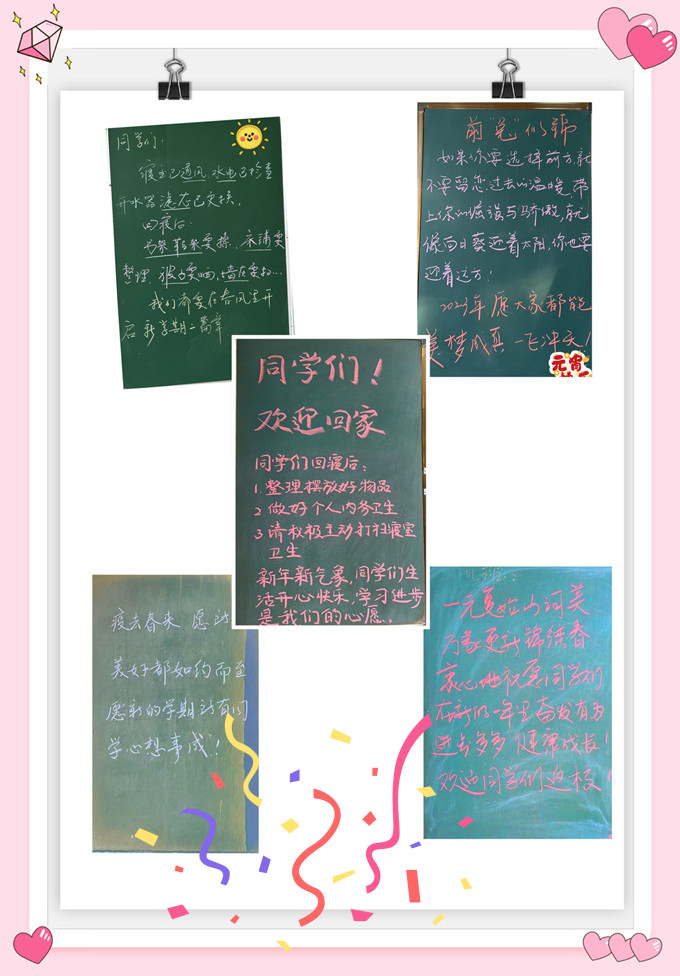 同学们：
寝室已通风 水电已检查
开水器滤芯已更换，
回寝后：
书架鞋架要擦，床铺要
整理，被子要晒，墙灰要扫…
我们都要在春风里开
启新学期之篇章
前"兔"似锦
如果你要选择前方，就
不要留恋过去的温暖，带
上你的倔强与骄傲，就
像向日葵迎着太阳，你也要
迎着远方！
2023年愿大家都能
美梦成真 一飞冲天！
元宵
同学们！
欢迎回家
同学们回寝后：
1.整理摆放好物品
2.做好个人内务卫生
3.请积极主动打扫寝室
卫生
新年新气象，同学们生
活开心快乐，学习进步
是我们的心愿..
疫去春来 愿所
美好都如约而至
愿新的学期所有们
学心想事成！
一元复始山河美
万象更新锦绣春
衷心地祝愿同学们
在新的一年里奋发有为
进步多多 健康成长！
欢迎同学们返校！